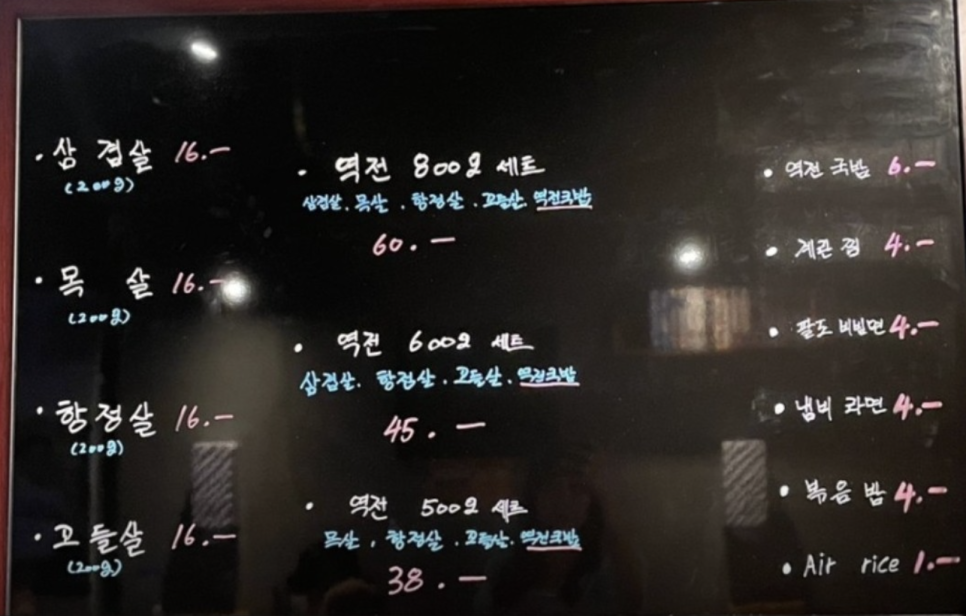 · 삼 겹살 16.-
(200g)
· 목 살 16.-
(200g)
· 항정살 16.-
(200g)
· 꼬들살 16.-
(200g)
· 역전 800g 세트
삼겹살. 목살. 항정살. 꼬들살. 역전국밥
60.-
· 역전 600g 세트
삼겹살. 항정살. 꼬들살. 역전국밥
45.-
· 역전 500g 세트
목살, 항정살. 꼬들살. 역전국밥
38.-
· 역전 국밥 6.-
· 계란 찜 4.-
· 팔도 비빔면 4.-
· 냄비 라면 4.-
· 볶음 밥 4.-
· Air rice 1.-